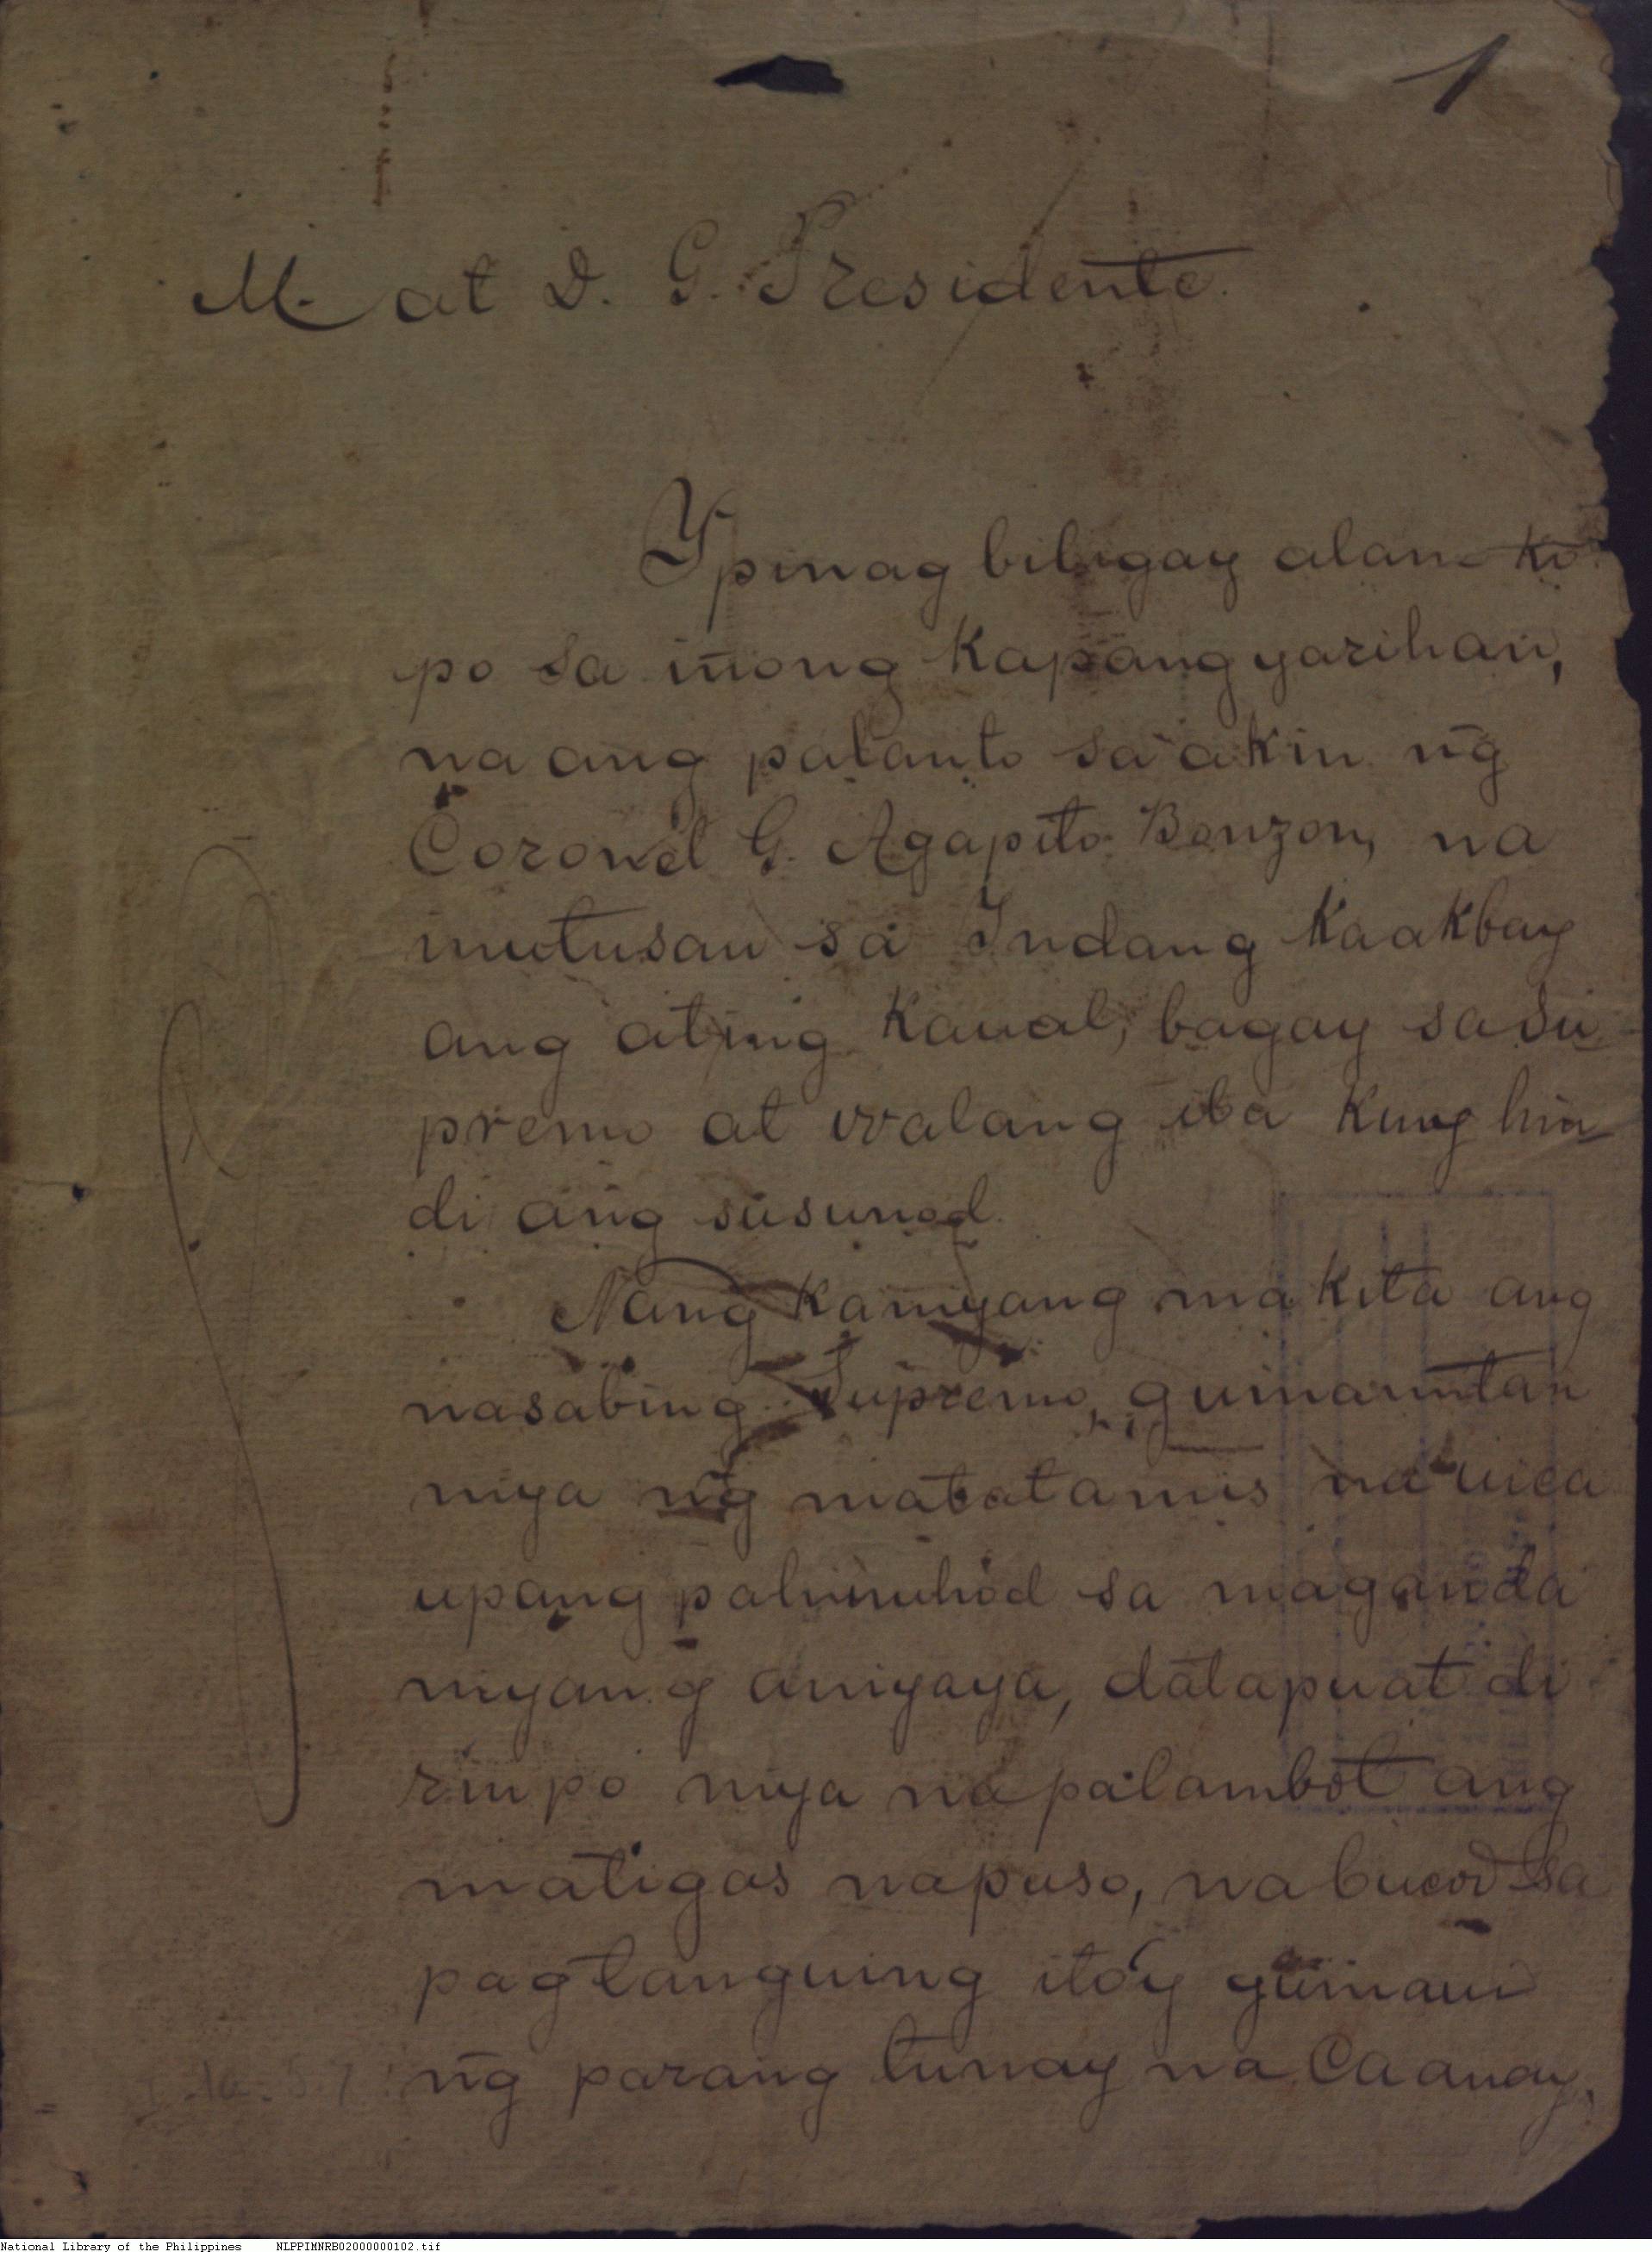 1
M. at D. G. Presidente.
Ypinag bibigay alam ko
po sa inong Kapangyarihan,
na ang patanto sa akin n̄g
Coronel G. Agapito Bonzon, na
inutusan sa Indang Kaakbay
ang ating Kaual, bagay sa Su
premo at walang iba Kung hin
di ang susunod.
Nang kaniyang makita ang
nasabing Supremo, guinamitan
niya n̄g matatamis na uica
upang pahinuhod sa maganda
niyang aniyaya, datapuat di
rin po niya napalambot ang
matigas na puso, na bucod sa
pagtanguing ito'y guinaui
n̄g parang tunay na Caauay,
National Library of the Philippines NLPPIMNRB02000000102.tif